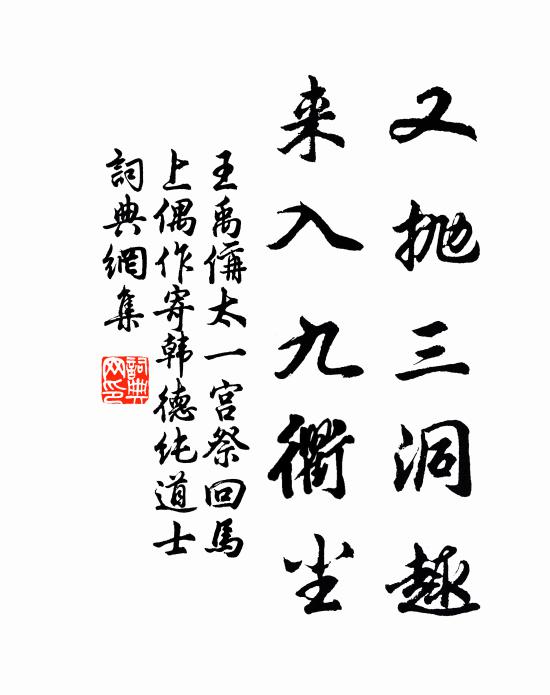 又抛三洞趣
来入九衢尘
王禹偁太一宫祭回馬
上偶作寄韩德纯道士
詞典網集
詞典網印